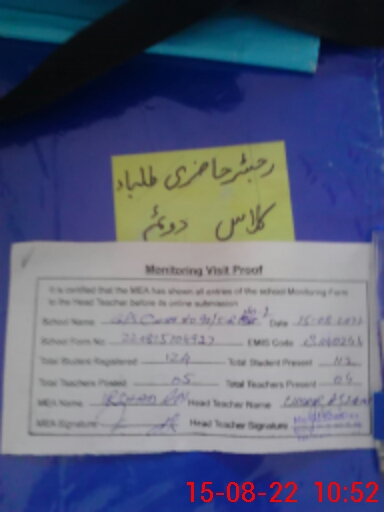 رجسٹر حاضری طلباء
کلاس دوئم
Monitoring Visit Proof
It is certified that the MEA has shown all entries of the school Monitoring Form
to the Head Teacher before its online submission
School Name GPS Date 15-08-2022
School Form No: EMIS Code
Total Student Registered 124 Total Student Present 112
Total Teachers Posted 05 Total Teachers Present 04
MEA Name Head Teacher Name
MEA Signature Head Teacher Signature
15-08-22 10:52